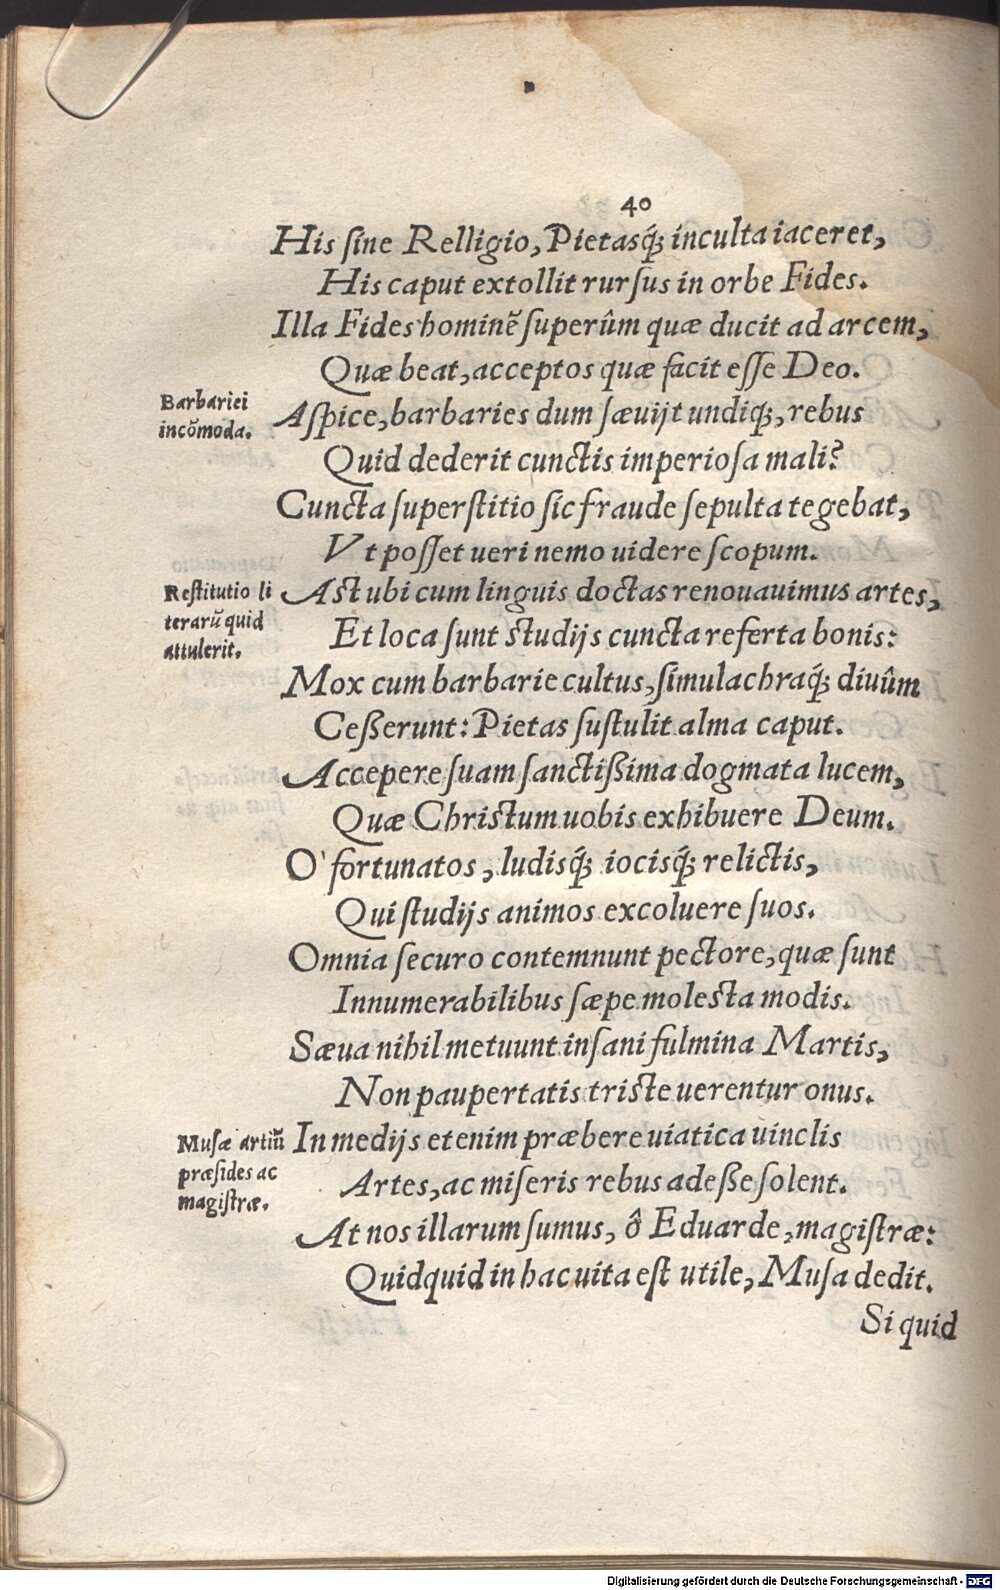 40
His ſine Relligio, Pietasq́; inculta iaceret,
His caput extollit rurſus in orbe Fides.
Illa Fides hominẽ ſuperûm quæ ducit ad arcem,
Quæ beat, acceptos quæ facit eſſe Deo.
Barbariei
incõmoda.
Aſpice, barbaries dum ſæuijt undiq́;, rebus
Quid dederit cunctis imperioſa mali?
Cuncta ſuperſtitio ſic fraude ſepulta tegebat,
Vt poſſet ueri nemo uidere ſcopum.
Reſtitutio li
terarũ quid
attulerit.
Aſt ubi cum linguis doctas renouauimus artes,
Et loca ſunt ſtudijs cuncta referta bonis:
Mox cum barbarie cultus, ſimulachraq́; diuûm
Ceßerunt: Pietas ſuſtulit alma caput.
Accepere ſuam ſanctißima dogmata lucem,
Quæ Chriſtum uobis exhibuere Deum.
O' fortunatos, ludisq́; iocisq́; relictis,
Qui ſtudijs animos excoluere ſuos.
Omnia ſecuro contemnunt pectore, quæ ſunt
Innumerabilibus ſæpe moleſta modis.
Sæua nihil metuunt inſani fulmina Martis,
Non paupertatis triſte uerentur onus.
Muſæ artiũ
præſides ac
magiſtræ.
In medijs etenim præbere uiatica uinclis
Artes, ac miſeris rebus adeße ſolent.
At nos illarum ſumus, ô Eduarde, magiſtræ:
Quidquid in hac uita eſt utile, Muſa dedit.
Si quid
Digitalisierung gefördert durch die Deutsche Forschungsgemeinschaft - DFG